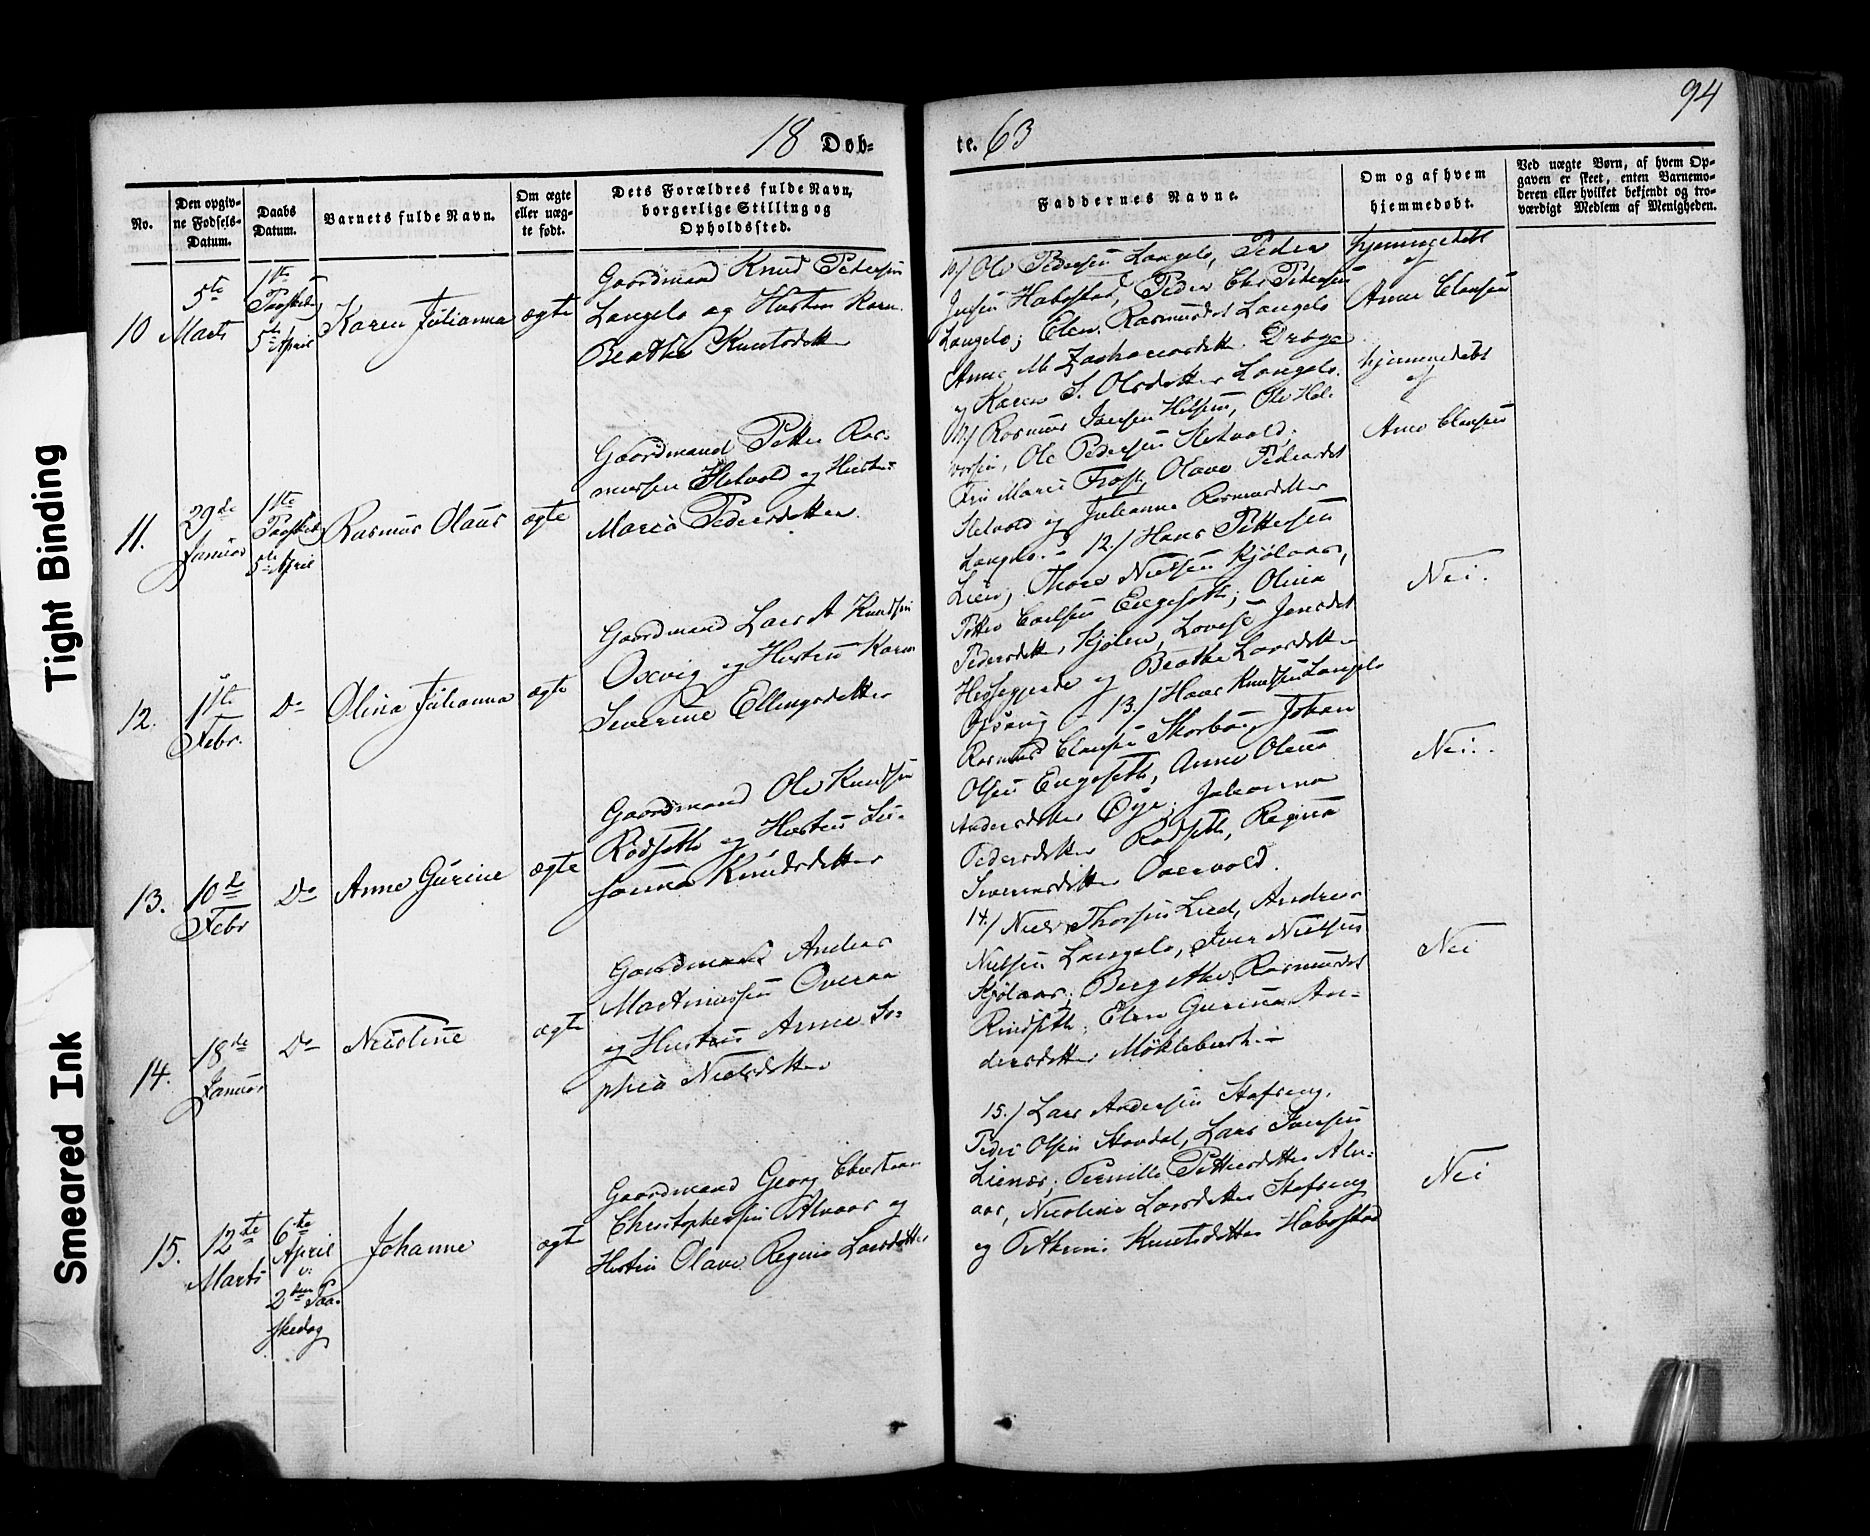 94
18 Døb-
te. 63
No.
Den opgiv-
ne Fødsels-
Datum.
Daabs
Datum.
Barnets fulde Navn.
Om ægte
eller uæg-
te født.
Dets Forældres fulde Navn,
borgerlige Stilling og
Opholdssted.
Faddernes Navne.
Om og af hvem
hjemmedøbt.
Ved uægte Børn, af hvem Op-
gaven er skeet, enten Barnemo-
deren eller hvilket bekjendt og tro-
værdigt Medlem af Menigheden.
10
5te
Marts
1ste
Paaskedag
5te April
Karen Julianna
ægte
Gaardmand Knud Pedersen
Langelo og Hustru Karn
Beathe Knutsdatter
10./ Ole Pedersen Langelo, Peder
Jensen Habostad, Peder Chr. Petersen
Langelo; Elen Rasmusdt Langelo
Anne M. Zachariasdatter
og Karen S. Olsdatter Langelo.
hjemmedøbt
af
Anne Clausen
11.
29de
Januar
1ste
Paaskedag
5te April
Rasmus Olaus
ægte
Gaardmand Petter Ras-
mussen Hetvold og Hustru
Maria Pedersdatter
11./ Rasmus Jansen, Ole Hal-
vorsen, Ole Pedersen Hetvold;
Marie Frost, Olave Pedersdt
Hetvold og Julianne Rasmusdatter
Langelo. - 12./ Hans Pettersen
hjemmedøbt
af
Anne Clausen
12.
11te
Febr.
Do
Olina Julianna
ægte
Gaardmand Lars A Knudsen
Oxvig og Hustru Karn
Severine Ellingsdatter
Lien, Thore Nielsen Kjølaas,
Petter Carlsen Engeseth; Olina
Pedersdatter Kjølen, Lovise Jensdt
Hessegjerde og Beathe Larsdatter
Oxvig - 13./ Hans Knudsen Langelo
Nei.
13.
10de
Febr
Do
Anne Gurine
ægte
Gaardmand Ole Knudsen
Rødseth og Hustru Su-
sanna Knudsdatter
Rasmus Clausen, Johan
Olsen Engeseth, Anne Olena
Andersdatter Øye, Julianna
Pedersdatter Rødseth, Regina
Severinsdatter Overvold.
Nei.
14.
18de
Januar
Do
Nicoline
ægte
Gaardmand Andreas
Martinussen Overaa
og Hustru Anne So-
phia Nielsdatter
14./ Niels Thorsen Lied, Andreas
Nielsen Langelo, Iver Nielsen
Kjølaas; Bergithe Rasmusdt
Rindseth; Elen Gurina An-
dersdatter Møklebust. -
Nei
15.
12te
Marts
6te
April
ɔ:
2den Paa-
skedag
Johanne
ægte
Gaardmand Georg Christian
Christophersen Alvaas og
Hustru Olave Regine Larsdatter
15./ Lars Andersen Stafseng,
Peder Olsen Stavdal, Lars Jansen
Lienæs; Pernille Pettersdatter Alv-
aas, Nicoline Larsdatter Stafseng
og Pethrine Knutsdatter Habostad
Nei
Tight Binding
Smeared Ink